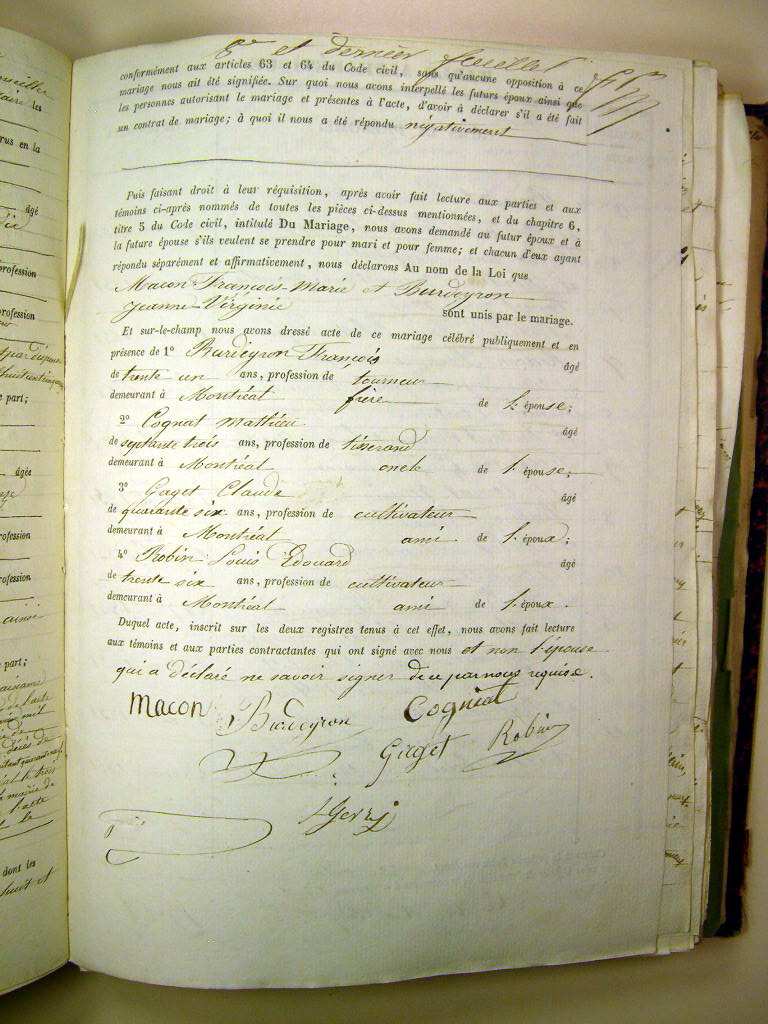 et dernier feuillet
conformément aux articles 63 et 64 du Code civil, sans qu'aucune opposition à ce
mariage nous ait été signifiée. Sur quoi nous avons interpellé les futurs époux ainsi que
les personnes autorisant le mariage et présentes à l'acte, d'avoir à déclarer s'il a été fait
un contrat de mariage; à quoi il nous a été répondu négativement
Puis faisant droit à leur réquisition, après avoir fait lecture aux parties et aux
témoins ci-après nommés de toutes les pièces ci-dessus mentionnées, et du chapitre 6,
titre 5 du Code civil, intitulé Du Mariage, nous avons demandé au futur époux et à
la future épouse s'ils veulent se prendre pour mari et pour femme; et chacun d'eux ayant
répondu séparément et affirmativement, nous déclarons Au nom de la Loi que
Macon François-Marie et Burdeyron
Jeanne-Virginie sont unis par le mariage.
Et sur-le-champ nous avons dressé acte de ce mariage célébré publiquement et en
présence de 1° Burdeyron François âgé
de trente un ans, profession de tourneur
demeurant à Montréal frère de l'épouse;
2° Cognat Mathieu âgé
de septante trois ans, profession de tisserand
demeurant à Montréal oncle de l'épouse;
3° Gaget Claude âgé
de quarante six ans, profession de cultivateur
demeurant à Montréal ami de l'époux;
4° Robin Louis Edouard âgé
de trente six ans, profession de cultivateur
demeurant à Montréal ami de l'époux.
Duquel acte, inscrit sur les deux registres tenus à cet effet, nous avons fait lecture
aux témoins et aux parties contractantes qui ont signé avec nous et non l'épouse
qui a déclaré ne savoir signer de ce par nous requise.
Macon Burdeyron Cogniat
Gaget Robin